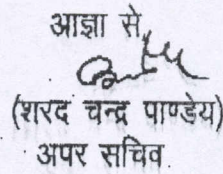 आज्ञा से,
(शरद चन्द्र पाण्डेय)
अपर सचिव.